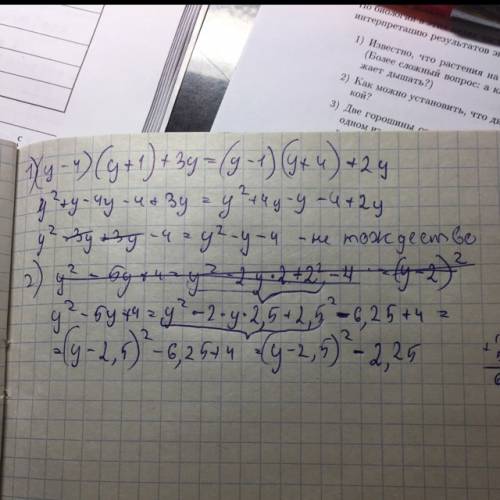 По биологии в э
интерпретацию результатов эк
1) Известно, что растения на
(Более сложный вопрос: а ка
жает дышать?)
2) Как можно установить, что ды
кой?
3) Две горошины
одном из
с
1) (y-4)(y+1)+3y=(y-1)(y+4)+2y
y²+y-4y-4+3y=y²+4y-y-4+2y
y²-3y+3y-4=y²-y-4 - не тождество
2) y²-5y+4=y²-2y·2+2²-4=(y-2)²
y²-5y+4=y²-2·y·2,5+2,5²-6,25+4=
=(y-2,5)²-6,25+4=(y-2,5)²-2,25